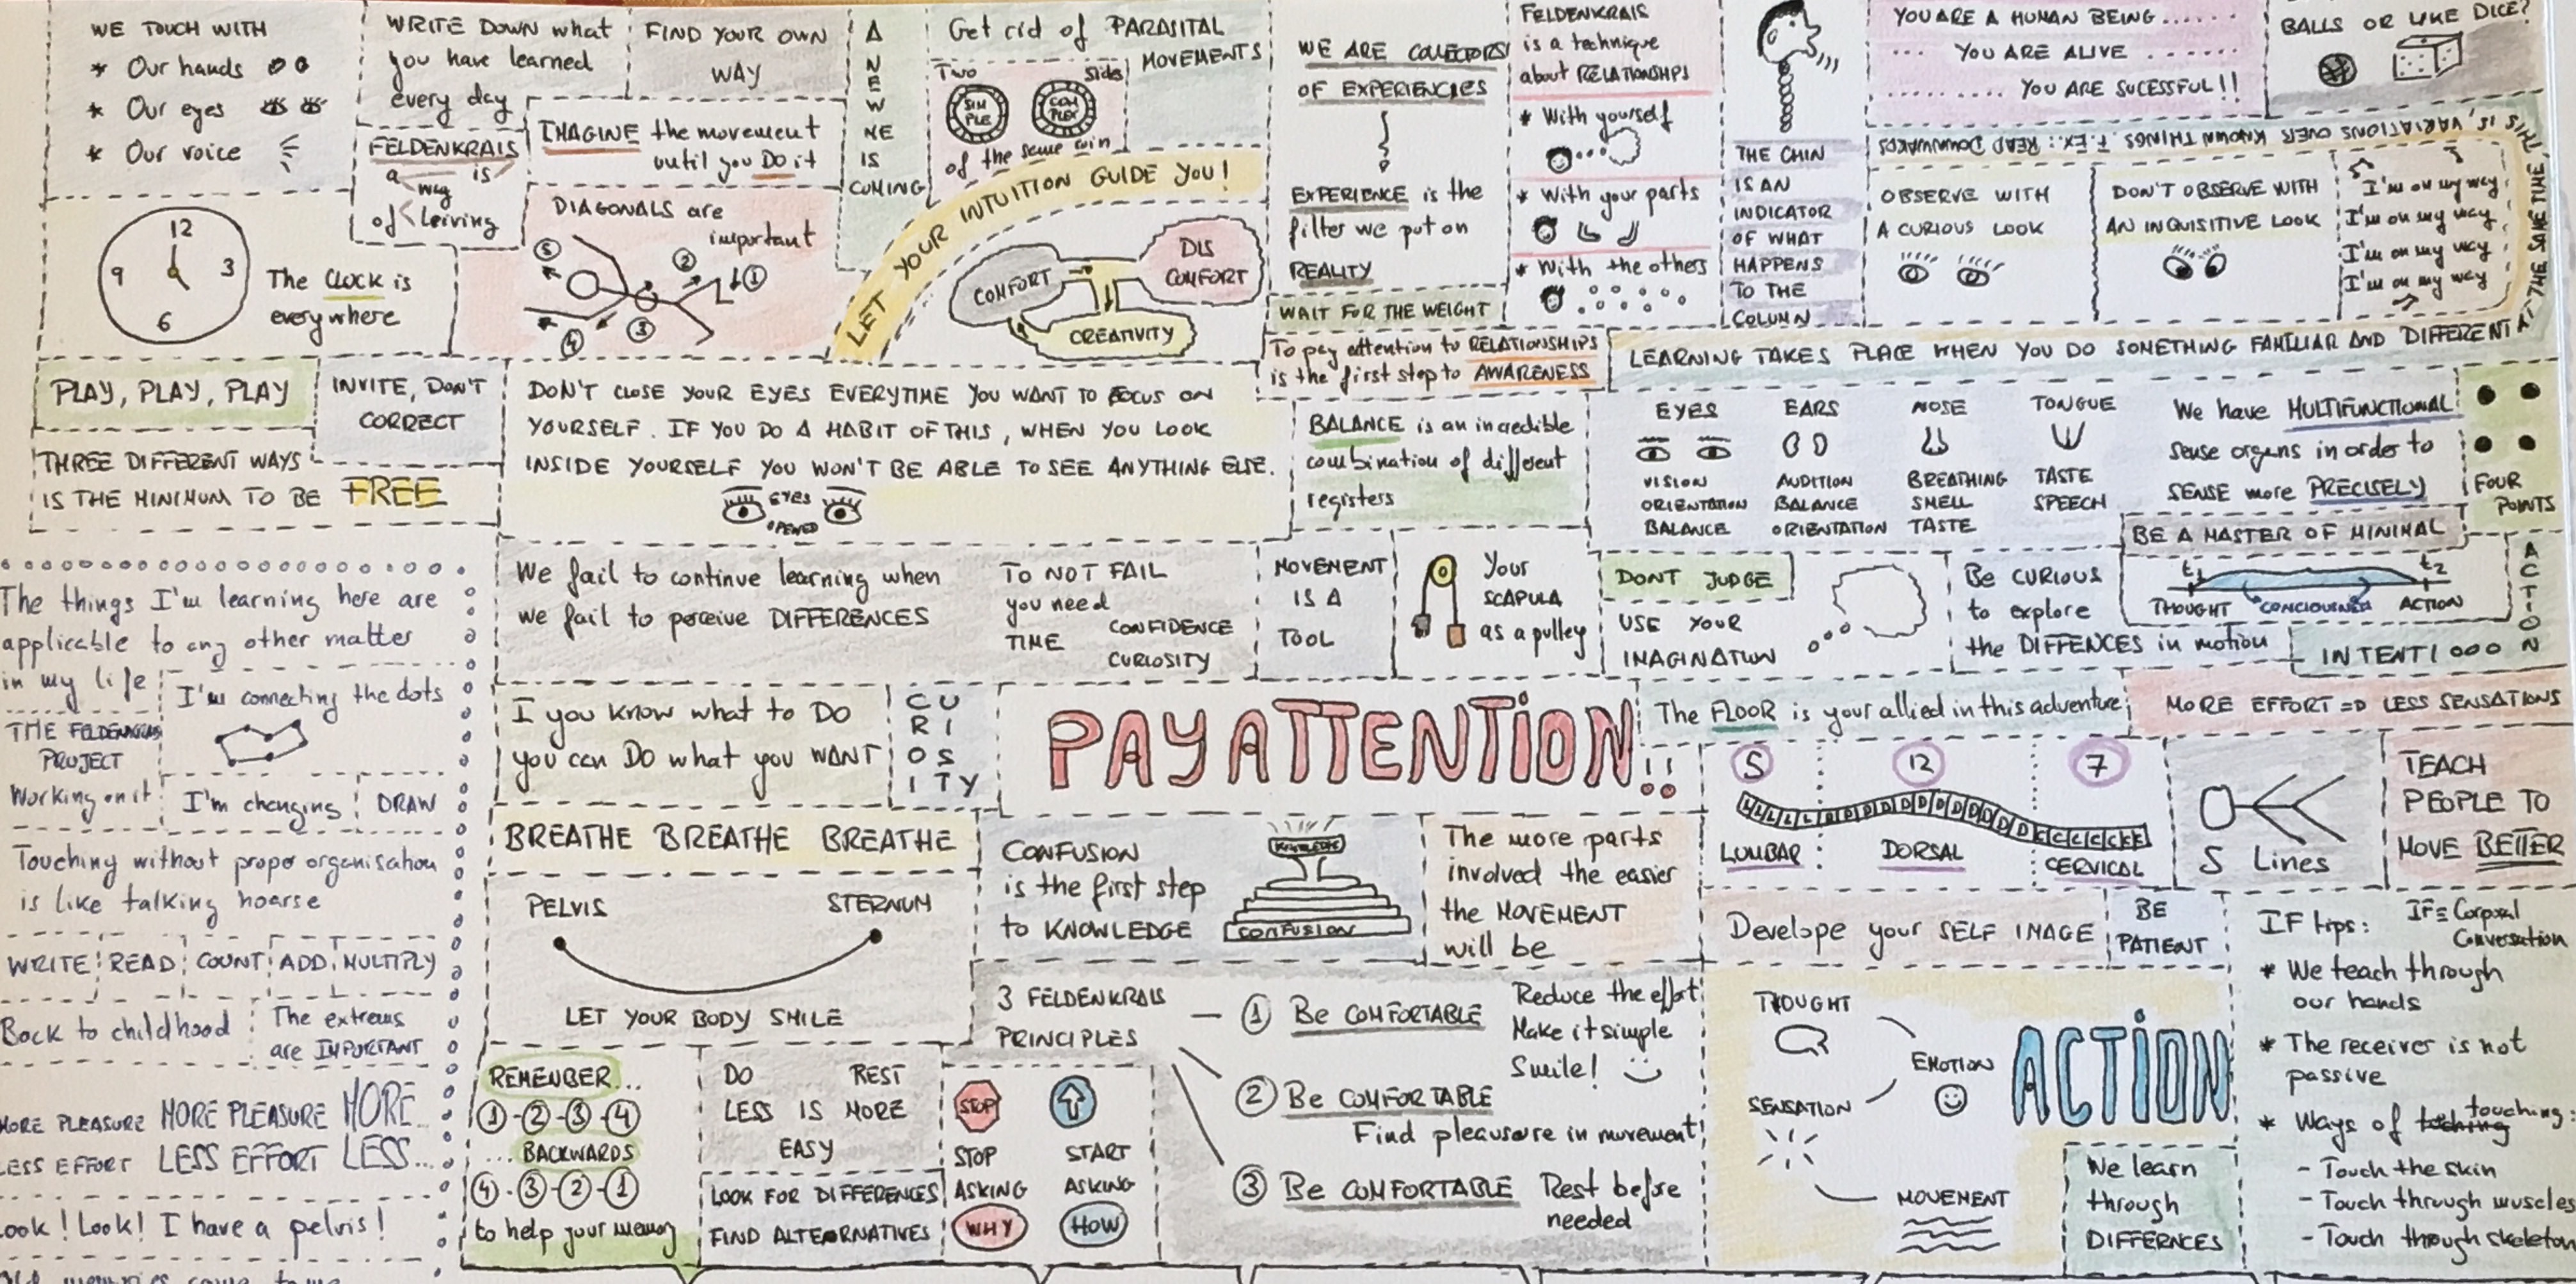 WE TOUCH WITH
* Our hands
* Our eyes
* Our voice
WRITE DOWN what
you have learned
every day
FIND YOUR OWN
WAY
FELDENKRAIS
is
a way
of leiving
IMAGINE the movement
until you DO it
A
NEW
ME
IS
COMING
Get rid of PARASITAL
MOVEMENTS
Two sides
SIM
PLE
COM
PLEX
of the same coin
12
9 3
6
The CLOCK is
everywhere
DIAGONALS are
important
5
2
1
3
4
LET YOUR INTUITION GUIDE YOU!
COMFORT
DIS
COMFORT
CREATIVITY
WE ARE COLLECTORS
OF EXPERIENCIES
EXPERIENCE is the
filter we put on
REALITY
WAIT FOR THE WEIGHT
FELDENKRAIS
is a technique
about RELATIONSHIPS
* With yourself
* With your parts
* With the others
THE CHIN
IS AN
INDICATOR
OF WHAT
HAPPENS
TO THE
COLUMN
YOU ARE A HUMAN BEING......
... YOU ARE ALIVE .......
......... YOU ARE SUCESSFUL!!
BALLS OR LIKE DICE?
LEARNING TAKES PLACE WHEN YOU DO SOMETHING FAMILIAR AND DIFFERENT AT THE SAME TIME, THIS IS, VARIATIONS OVER KNOWN THINGS. F.EX.: READ DOWNWARDS
OBSERVE WITH
A CURIOUS LOOK
DON'T OBSERVE WITH
AN INQUISITIVE LOOK
I'm on my way
I'm on my way
I'm on my way
I'm on my way
To pay attention to RELATIONSHIPS
is the first step to AWARENESS
PLAY, PLAY, PLAY
INVITE, DON'T
CORRECT
THREE DIFFERENT WAYS
IS THE MINIMUM TO BE FREE
DON'T CLOSE YOUR EYES EVERYTIME YOU WANT TO FOCUS ON
YOURSELF. IF YOU DO A HABIT OF THIS, WHEN YOU LOOK
INSIDE YOURSELF YOU WON'T BE ABLE TO SEE ANYTHING ELSE.
EYES
OPENED
BALANCE is an incredible
combination of different
registers
EYES EARS NOSE TONGUE
VISION AUDITION BREATHING TASTE
ORIENTATION BALANCE SMELL SPEECH
BALANCE ORIENTATION TASTE
We have MULTIFUNCTIONAL
sense organs in order to
SENSE more PRECISELY
FOUR
POINTS
We fail to continue learning when
we fail to perceive DIFFERENCES
TO NOT FAIL
you need
TIME
CONFIDENCE
CURIOSITY
MOVEMENT
IS A
TOOL
Your
SCAPULA
as a pulley
DONT JUDGE
USE YOUR
IMAGINATION
Be CURIOUS
to explore
the DIFFENCES in motion
BE A MASTER OF MINIMAL
ACTION
t1 t2
THOUGHT CONCIOUNESS ACTION
INTENTIOOON
The things I'm learning here are
applicable to any other matter
in my life
I'm connecting the dots
THE FELDENKRAIS
PROJECT
Working on it
I'm changing
DRAW
Touching without propo organisation
is like talking hoarse
WRITE READ COUNT ADD MULTIPLY
Back to childhood
The extrems
are IMPORTANT
MORE PLEASURE MORE PLEASURE MORE...
LESS EFFORT LESS EFFORT LESS...
Look! Look! I have a pelvis!
I you know what to DO
you can DO what you WANT
CU
RI
OS
ITY
PAY ATTENTION!!
The FLOOR is your allied in this adventure
MORE EFFORT => LESS SENSATIONS
BREATHE BREATHE BREATHE
PELVIS STERNUM
LET YOUR BODY SMILE
CONFUSION
is the first step
to KNOWLEDGE
KNOWLEDGE
CONFUSION
The more parts
involved the easier
the MOVEMENT
will be
5 12 7
LLLLLDDDDDDDDDDDDCCCCCCC
LUMBAR DORSAL CERVICAL
5 Lines
TEACH
PEOPLE TO
MOVE BETTER
Develope your SELF IMAGE
BE
PATIENT
REMEMBER...
1-2-3-4
... BACKWARDS
4-3-2-1
to help your memory
DO REST
LESS IS MORE
EASY
LOOK FOR DIFFERENCES
FIND ALTERNATIVES
STOP
STOP START
ASKING ASKING
WHY HOW
3 FELDENKRAIS
PRINCIPLES
1 Be COMFORTABLE
Reduce the effort
Make it simple
Smile!
2 Be COMFORTABLE
Find pleasure in movement
3 Be COMFORTABLE
Rest before
needed
THOUGHT
EMOTION
SENSATION
MOVEMENT
ACTION
We learn
through
DIFFERNCES
IF tips:
IF≡ Corporal
Conversation
* We teach through
our hands
* The receiver is not
passive
* Ways of touching:
- Touch the skin
- Touch through muscles
- Touch through skeleton